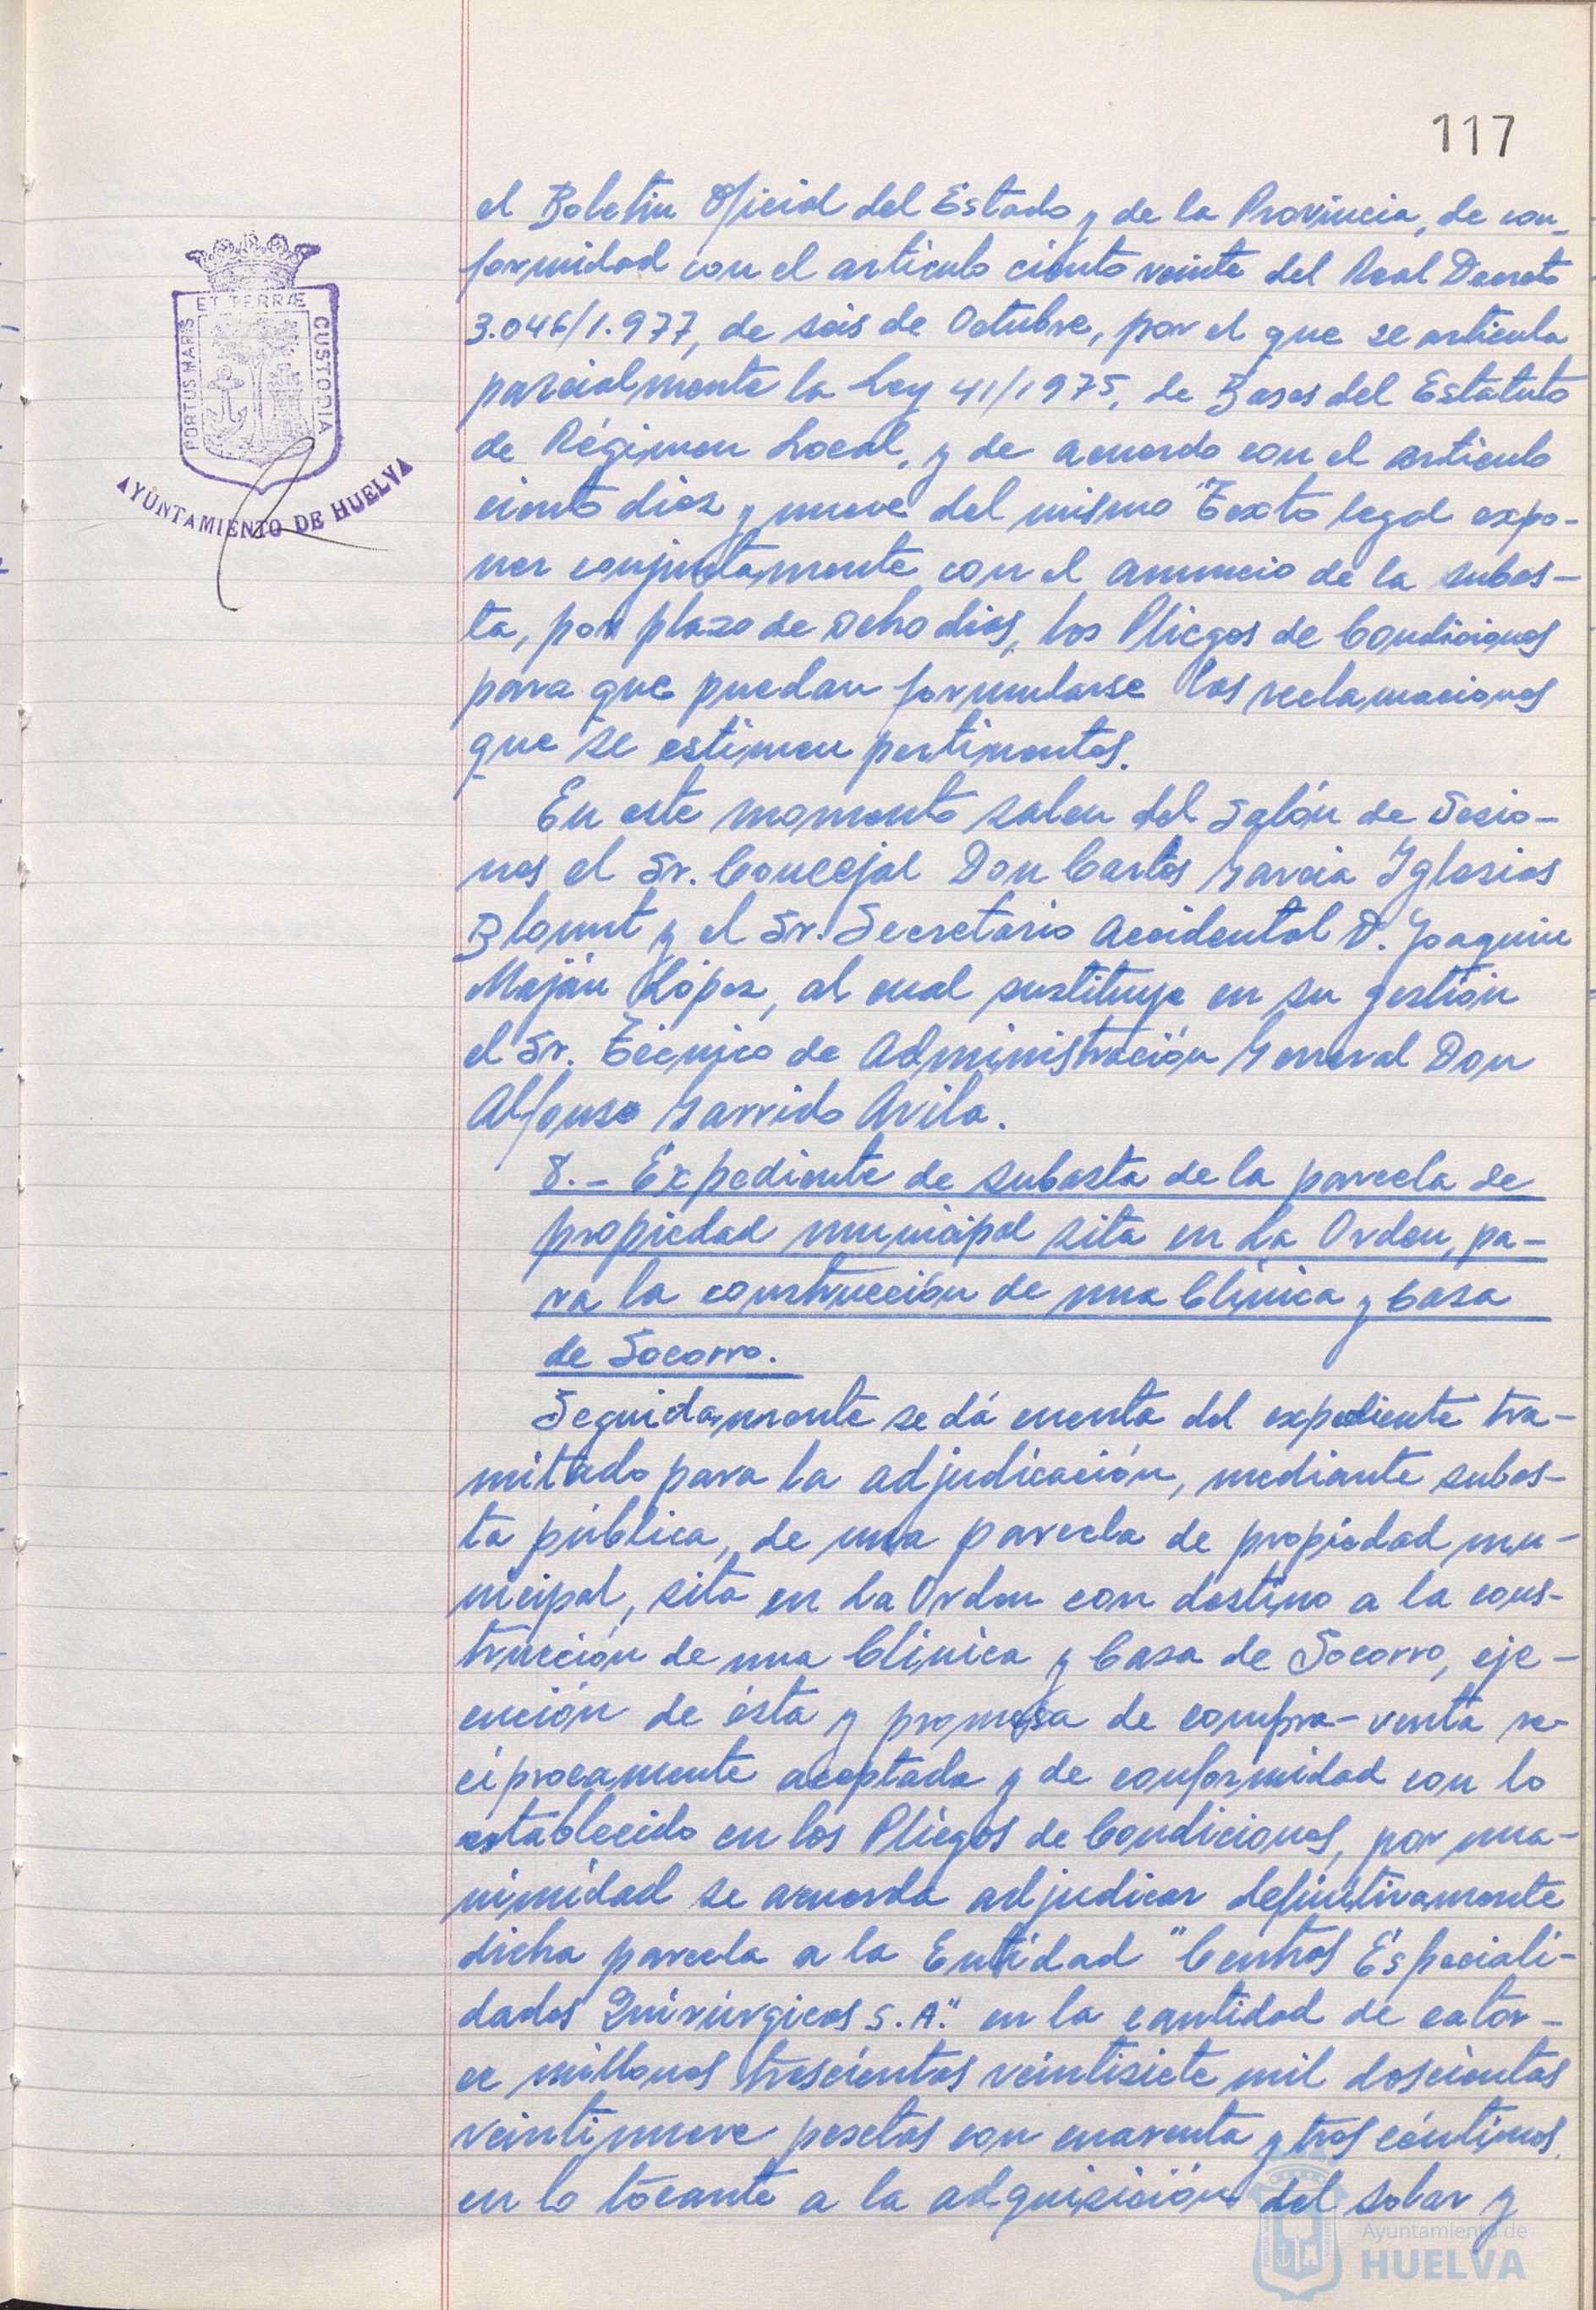 117
el Boletin Oficial del Estado y de la Provincia, de con-
formidad con el articulo ciento veinte del Real Decreto
3.046/1.977, de seis de Octubre, por el que se articula
parcialmente la Ley 41/1975, de Bases del Estatuto
de Régimen Local, y de acuerdo con el articulo
ciento diez y nueve del mismo Texto legal expo-
ner conjuntamente con el anuncio de la subas-
ta, por plazo de ocho dias, los Pliegos de Condiciones
para que puedan formularse las reclamaciones
que se estimen pertinentes.
En este momento salen del Salón de Sesio-
nes el Sr. Concejal Don Carlos Garcia Iglesias
Blount y el Sr. Secretario Accidental D. Joaquin
Maján López, al cual sustituye en su gestión
el Sr. Técnico de Administración General Don
Alfonso Garrido Avila.
8.- Expediente de subasta de la parcela de
propiedad municipal sita en La Orden, pa-
ra la construcción de una Clinica y Casa
de Socorro.
Seguidamente se dá cuenta del expediente tra-
mitado para la adjudicación, mediante subas-
ta pública, de una parcela de propiedad mu-
nicipal, sita en La Orden con destino a la cons-
trucción de una Clinica y Casa de Socorro, eje-
cución de ésta y promesa de compra-venta re-
ciprocamente aceptada y de conformidad con lo
establecido en los Pliegos de Condiciones, por una-
nimidad se acuerda adjudicar definitivamente
dicha parcela a la Entidad "Centros Especiali-
dades Quirúrgicas S.A." en la cantidad de cator-
ce millones trescientas veintisiete mil doscientas
veintinueve pesetas con cuarenta y tres céntimos
en lo tocante a la adquisición del solar y
PORTUS MARIS ET TERRÆ CUSTODIA
AYUNTAMIENTO DE HUELVA
Ayuntamiento de
HUELVA